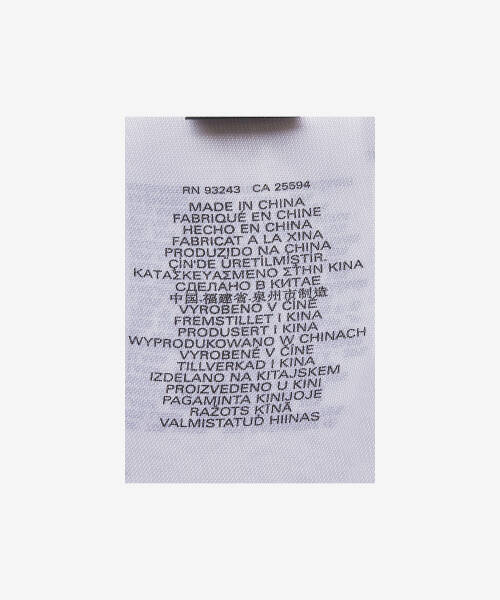 RN 93243 CA 25594
MADE IN CHINA
FABRIQUÉ EN CHINE
HECHO EN CHINA
FABRICAT A LA XINA
PRODUZIDO NA CHINA
ÇİN'DE ÜRETİLMİŞTİR.
ΚΑΤΑΣΚΕΥΑΣΜΕΝΟ ΣΤΗΝ ΚΙΝΑ
СДЕЛАНО В КИТАЕ
中国.福建省.泉州市制造
VYROBENO V ČÍNE
FREMSTILLET I KINA
PRODUSERT I KINA
WYPRODUKOWANO W CHINACH
VYROBENÉ V ČÍNE
TILLVERKAD I KINA
IZDELANO NA KITAJSKEM
PROIZVEDENO U KINI
PAGAMINTA KINIJOJE
RAŽOTS ĶĪNĀ
VALMISTATUD HIINAS